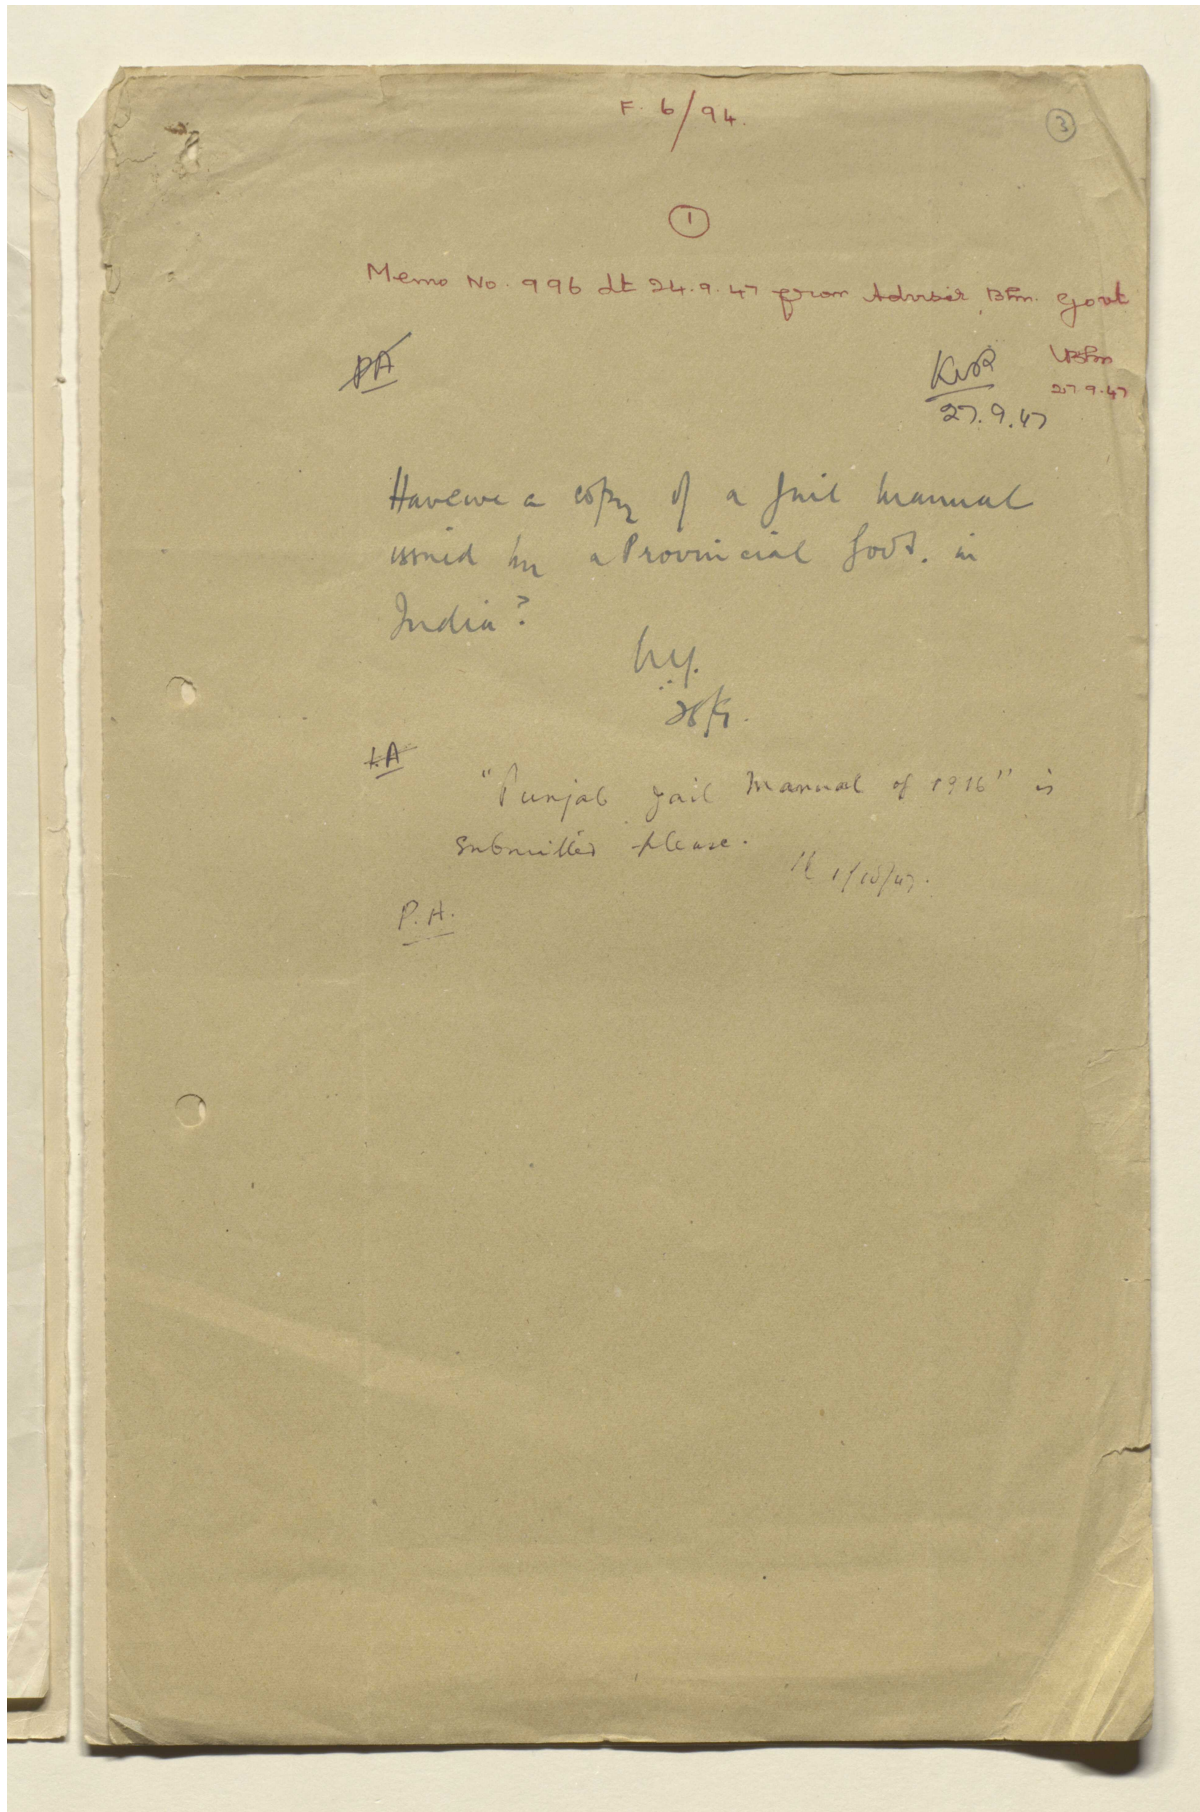 F. 6/94.
3
1
Memo No. 996 dt 24.9.47 from Adviser, Bhn. Govt
PA
27.9.47
27.9.47
Have we a copy of a Jail Manual
issued by a Provincial Govt. in
India?
"Punjab Jail Manual of 1916" is
submitted please.
1/10/47.
P.A.